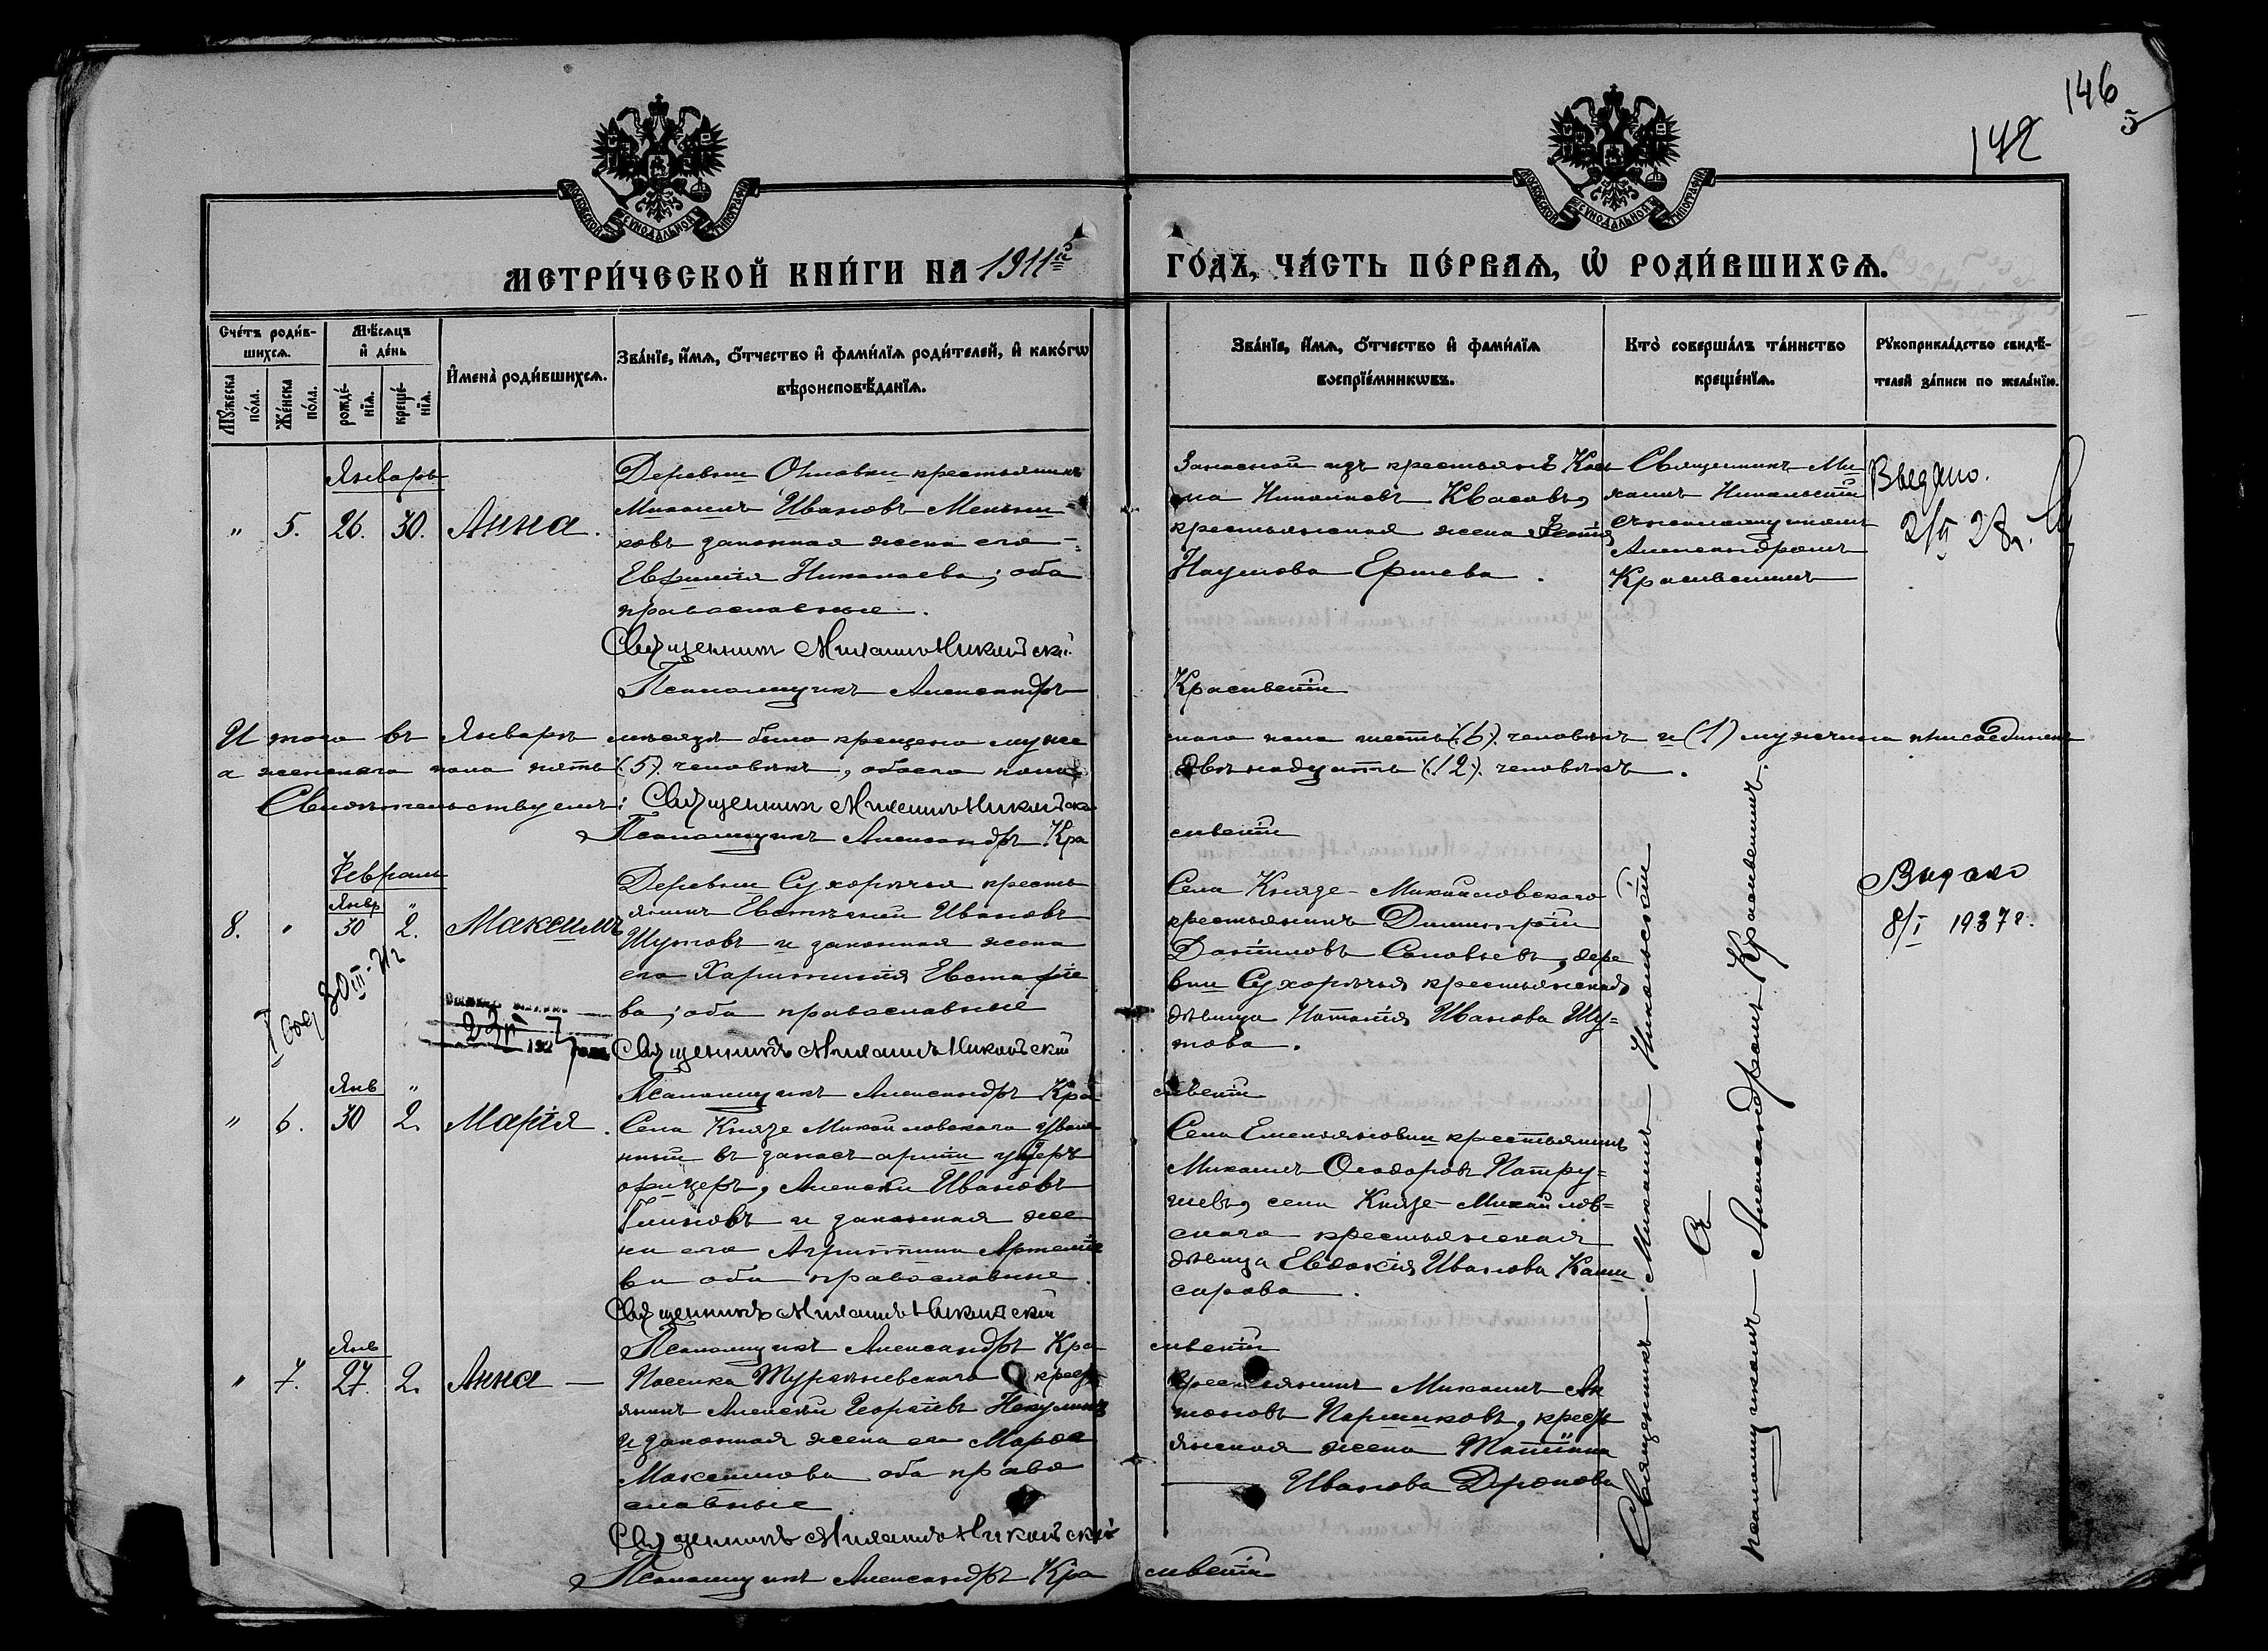 146
5
142
МОСКОВСКОЙ СѴНОДАЛЬНОЙ ТИПОГРАФІИ
МОСКОВСКОЙ СѴНОДАЛЬНОЙ ТИПОГРАФІИ
МЕТРИ́ЧЕСКОЙ КНИ́ГИ НА 1911й
ГО́ДЪ, ЧА́СТЬ ПЕ́РВАѦ, Ѡ҆ РОДИ́ВШИХСѦ.
Сче́тъ роди́в-
шихсѧ.
Мꙋ́жеска по́ла.
Же́нска по́ла.
Мѣ́сѧцъ
и҆ де́нь
рожде́-
нїѧ.
креще́-
нїѧ.
И҆мена̀ роди́вшихсѧ.
Зва́нїе, и҆́мѧ, ѻ҆́тчество и҆ фами́лїѧ роди́телей, и҆ како́гѡ
вѣроисповѣ́данїѧ.
Зва́нїе, и҆́мѧ, ѻ҆́тчество и҆ фами́лїѧ
воспрїе́мникѡвъ.
Кто̀ соверша́лъ та́инство
креще́нїѧ.
Рꙋкоприкла́дство свидѣ́-
телей за́писи по жела́нїю.
Январь
" 5. 26. 30. Анна.
Деревни крестьянинъ
Михаилъ Ивановъ
ковъ законная жена его
Евфимія Николаева; оба
православные.
Священникъ Михаилъ Никольскій
Псаломщикъ Александръ
Запасной изъ крестьянъ
Николаевъ Квасовъ,
крестьянская жена
Наумова Ершева.
Священникъ Ми-
хаилъ Никольскій
съ псаломщикомъ
Александромъ
Красивскимъ
Введено.
2/II 28 г.
Красивскій
Итого въ Январѣ мѣсяцѣ было крещено муже
скаго пола шесть (6) человѣкъ и (1) мужчина присоединенъ
а женскаго пола пять (5) человѣкъ, обоего пола
двѣнадцать (12) человѣкъ.
Свидѣтельствуемъ: Священникъ Михаилъ Никольскій
Псаломщикъ Александръ Кра
сивскій
Февраль
Янв "
8. " 30 2. Максимъ
Деревни Сухорѣчья кресть
янинъ Евстигней Ивановъ
Шутовъ и законная жена
его Харитинія Евстафіе
ва; оба православные
Священникъ Михаилъ Никольскій
Псаломщикъ Александръ Кра
сивскій
Села Князе-Михайловскаго
крестьянинъ Димитрій
Даниловъ Соловьевъ, дере
вни Сухорѣчья крестьянская
дѣвица Наталія Иванова Шу-
това.
Выдано
8/I 1937 г.
Янв "
" 6. 30 2. Марія.
Села Князе Михайловскаго уволе
нный въ запасъ арміи унтеръ
офицеръ, Алексѣй Ивановъ
и законная же
на его Агриппина Артеміе
ва оба православные
Священникъ Михаилъ Никольскій
Псаломщикъ Александръ Кра
сивскій
Села Емельяновки крестьянинъ
Михаилъ Ѳеодоровъ Патру-
шевъ, села Князе-Михайлов-
скаго крестьянская
дѣвица Евдокія Иванова Каши
сарова.
Янв
" 7. 27. 2. Анна —
Поселка крест
янинъ Алексѣй Георгіевъ
и законная жена его Марѳа
Максимова оба право
славные
Священникъ Михаилъ Никольскій
Псаломщикъ Александръ Кра
сивскій
Крестьянинъ Михаилъ Ан
тоновъ Паршиковъ, крест
янская жена Татіана
Иванова Дронова
Священникъ Михаилъ Никольскій
Съ
псаломщикомъ Александромъ Красивскимъ.